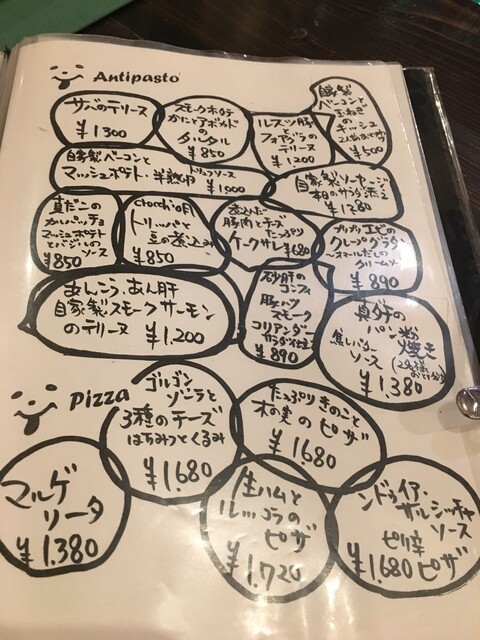 Antipasto
サバのテリーヌ
¥1300
スモークホタテ
かにとアボカドの
タルタル
¥850
ルスツ豚
と
フォアグラの
テリーヌ
¥1200
自家製
ベーコンと
玉ねぎ
の
キッシュ
¥500
自家製ベーコンと
マッシュポテト・半熟卵
トリュフソース
¥1500
自家製ソーセージ
本日のサラダ添え
¥1280
真だこの
カルパッチョ
マッシュポテト
とバジルの
ソース
¥850
トリッパと
豆の煮込み
¥850
煮込んだ
豚肉とチーズ
たっぷり
ケークサレ ¥680
プリプリ エビの
クレープグラタン
¥890
あんこう、あん肝
自家製スモークサーモン
のテリーヌ
¥1,200
砂肝の
コンフィ
豚ハツ
スモーク
コリアンダー
サラダ仕立
¥890
真ダチの
パン粉
焼き
焦しバター
ソース
¥1.380
Pizza
ゴルゴン
ゾーラと
3種のチーズ
はちみつとくるみ
¥1680
たっぷりきのこと
木の実の
ピザ
¥1680
マルゲ
リータ
¥1.380
生ハムと
ルッコラの
ピザ
¥1.720
ンドゥイア・
サルシッチャ
ソース
ピリ辛
¥1680 ピザ